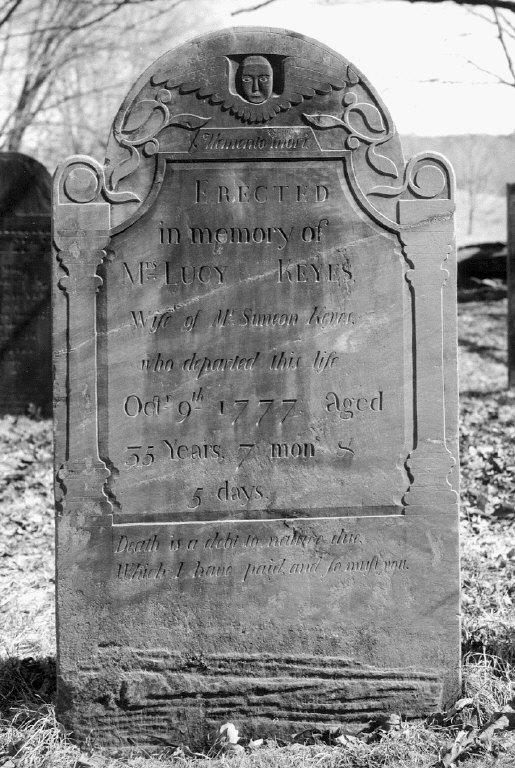 Memento mori.
ERECTED
in memory of
Mrs LUCY KEYES,
Wife of Mr. Simeon Keyes,
who departed this life
Octr 9th 1777. aged
35 Years, 7 mons &
5 days.
Death is a debt to nature due,
Which I have paid, and so muſt you.